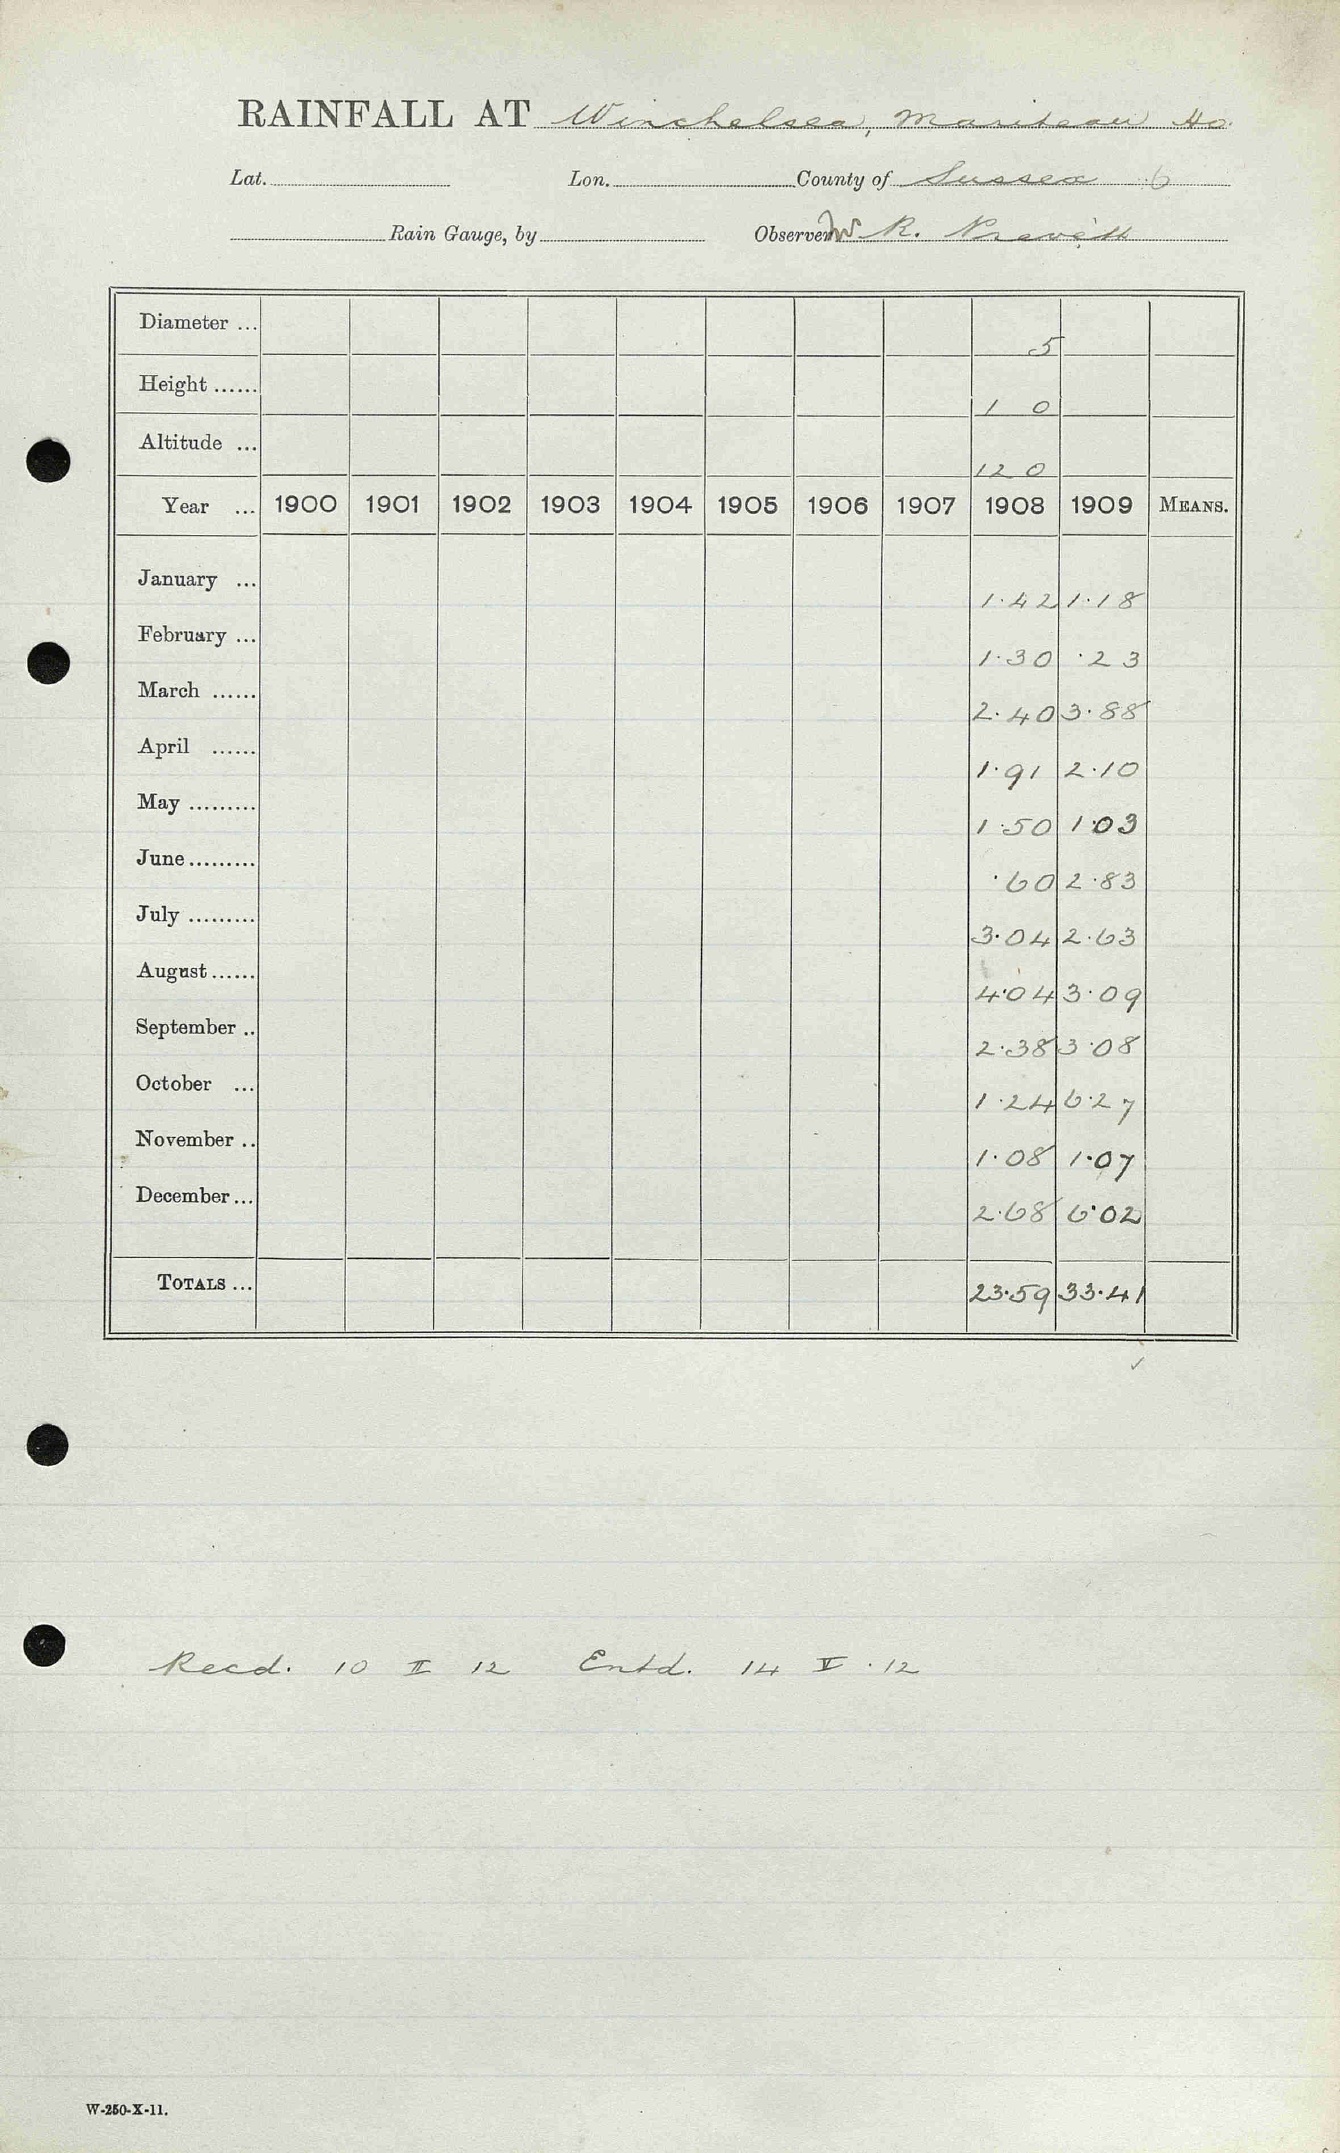 RAINFALL AT Winchelsea, Mariteau Ho.
Lat. Lon. County of Sussex 6
Rain Gauge, by Observer W R. Prevett
Diameter ... 5
Height ...... 1 0
Altitude ... 120
Year ... 1900 1901 1902 1903 1904 1905 1906 1907 1908 1909 MEANS.
January ... 1.42 1.18
February ... 1.30 .23
March ...... 2.40 3.88
April ...... 1.91 2.10
May ......... 1.50 1.03
June ......... .60 2.83
July ......... 3.04 2.63
August ...... 4.04 3.09
September .. 2.38 3.08
October ... 1.24 6.27
November .. 1.08 1.07
December ... 2.68 6.02
TOTALS ... 23.59 33.41
✓
Recd. 10 II 12 Entd. 14 V . 12
W-250-X-11.